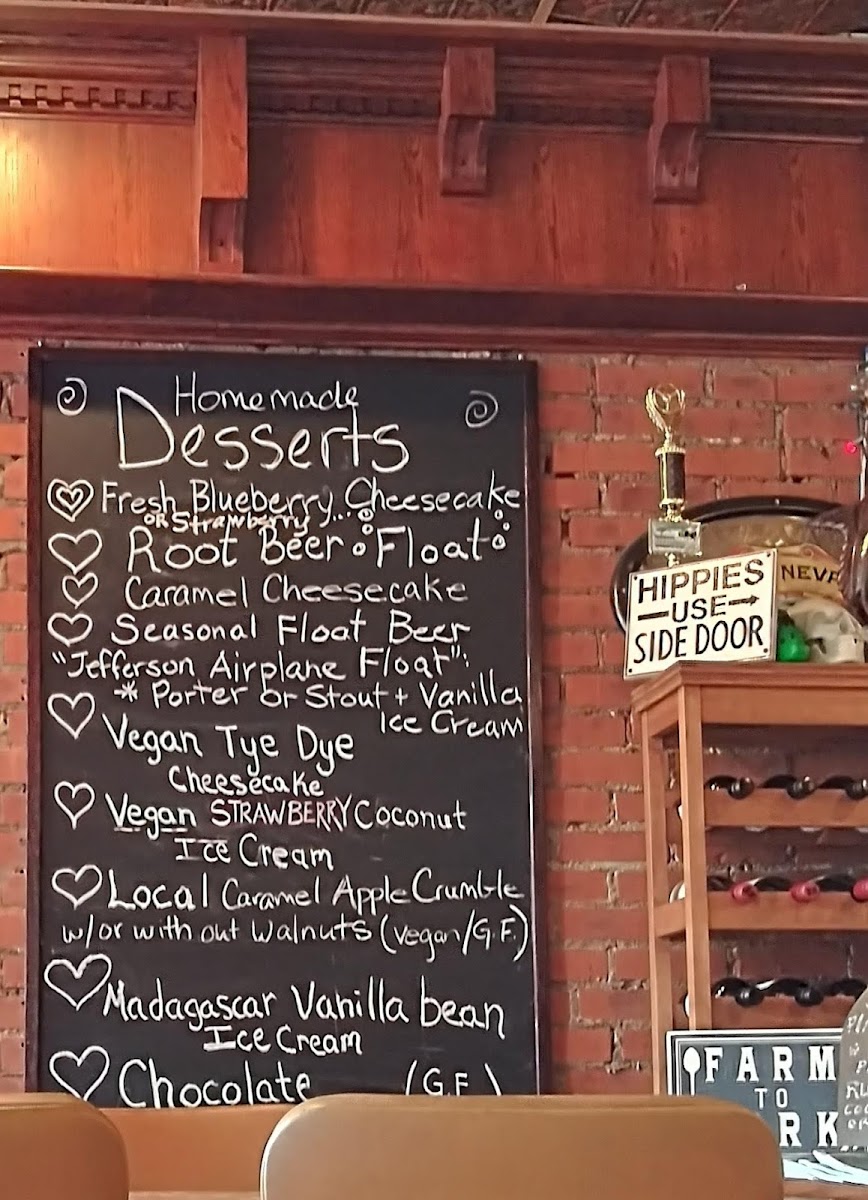 Homemade
Desserts
Fresh Blueberry... Cheesecake
OR Strawberry
Root Beer Float
Caramel Cheesecake
Seasonal Float Beer
"Jefferson Airplane Float":
* Porter or Stout + Vanilla
Ice Cream
Vegan Tye Dye
Cheesecake
Vegan STRAWBERRY Coconut
Ice Cream
Local Caramel Apple Crumble
w/or with out walnuts (vegan/G.F.)
Madagascar Vanilla bean
Ice Cream
Chocolate (G.F.)
HIPPIES
USE
SIDE DOOR
FARM
TO